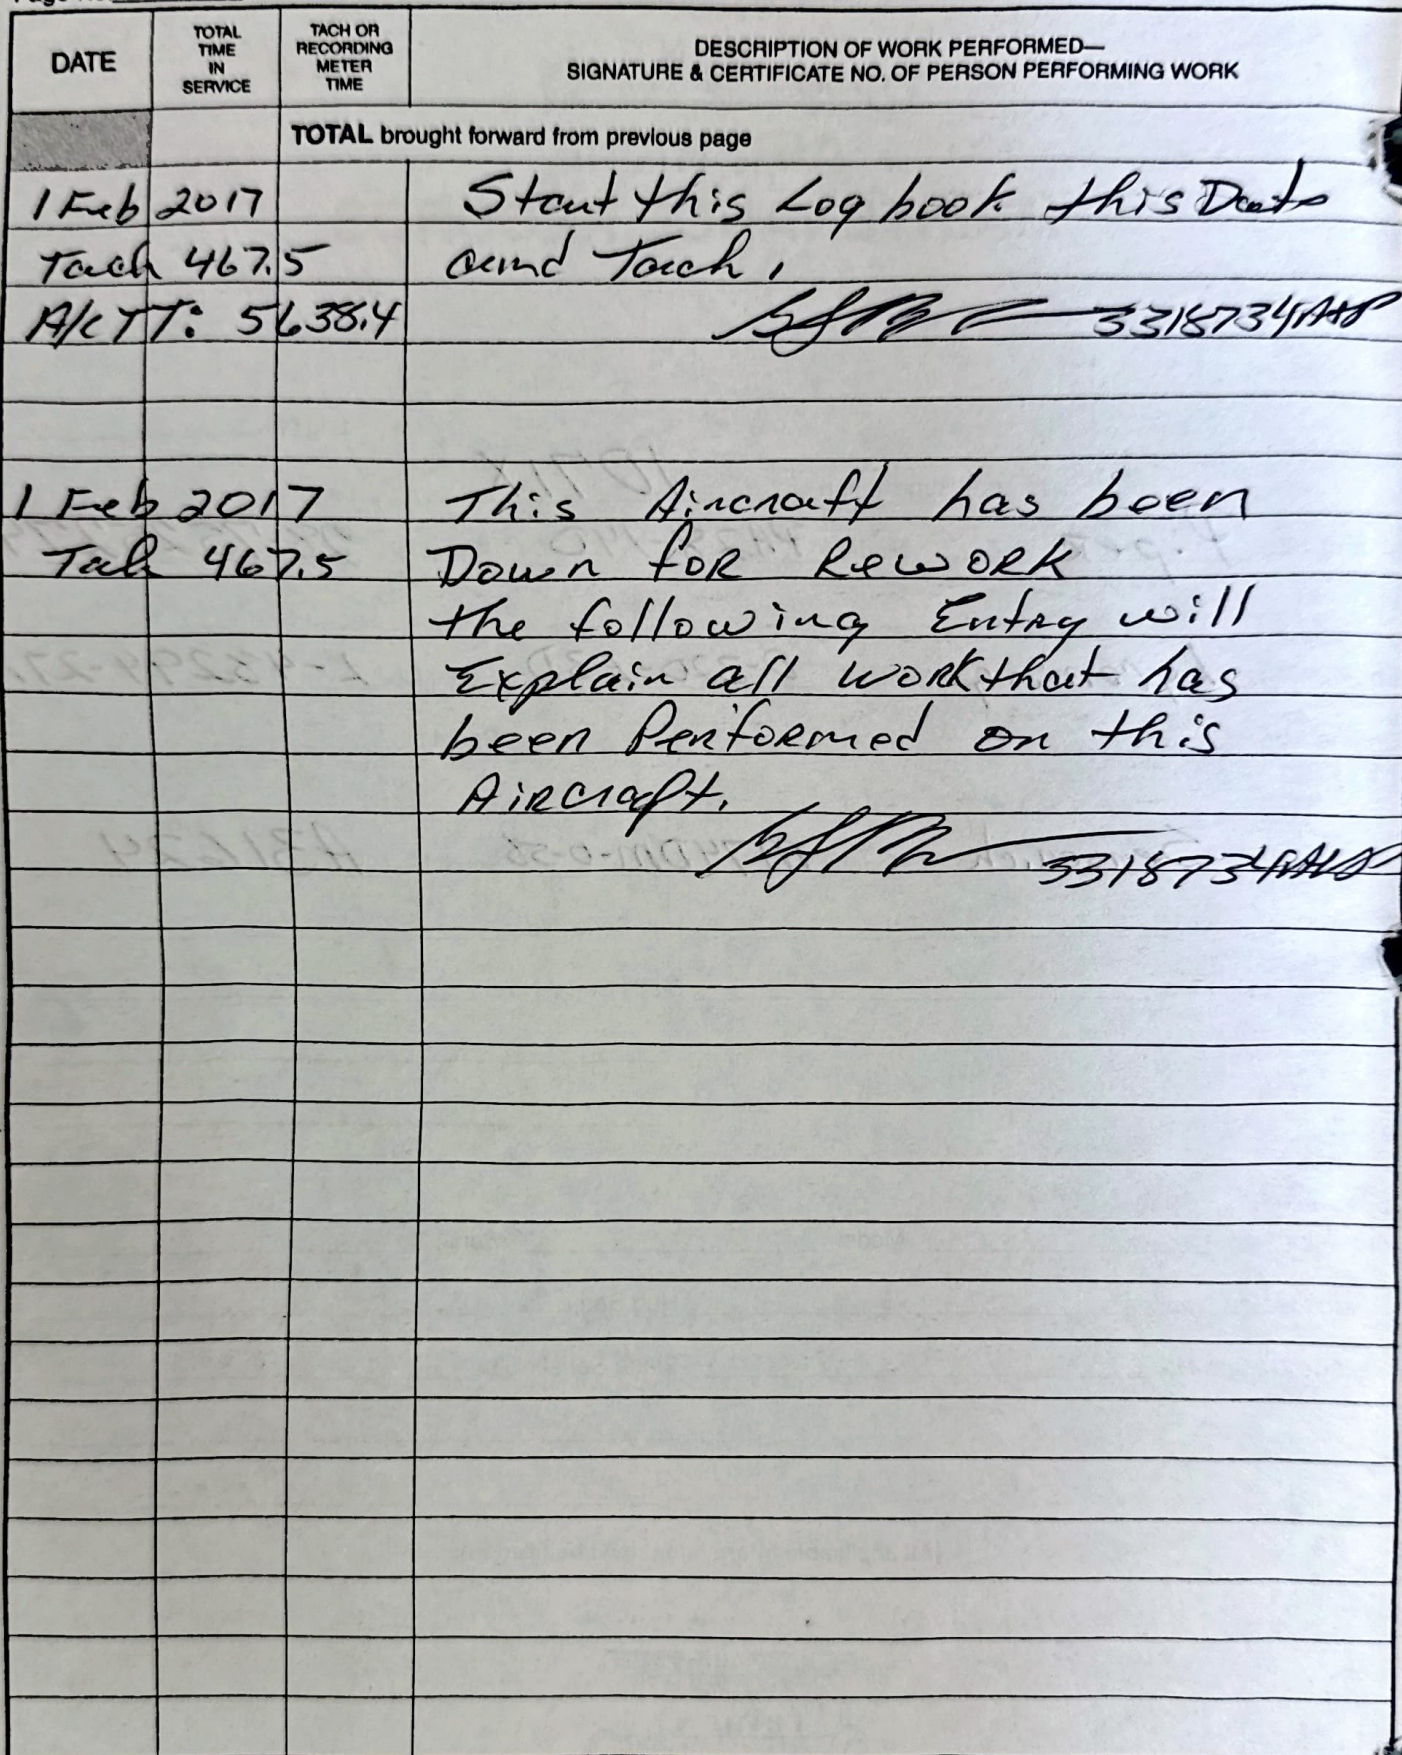 DATE
TOTAL TIME IN SERVICE
TACH OR RECORDING METER TIME
DESCRIPTION OF WORK PERFORMED—
SIGNATURE & CERTIFICATE NO. OF PERSON PERFORMING WORK
TOTAL brought forward from previous page
1 Feb 2017 Start this Log book this Date
Tach 467.5 and Tach.
A/C TT: 5638.4 3318734 A&P
1 Feb 2017 This Aircraft has been
Tach 467.5 Down for Rework
the following Entry will
Explain all work that has
been Performed on this
Aircraft.
3318734 A&P